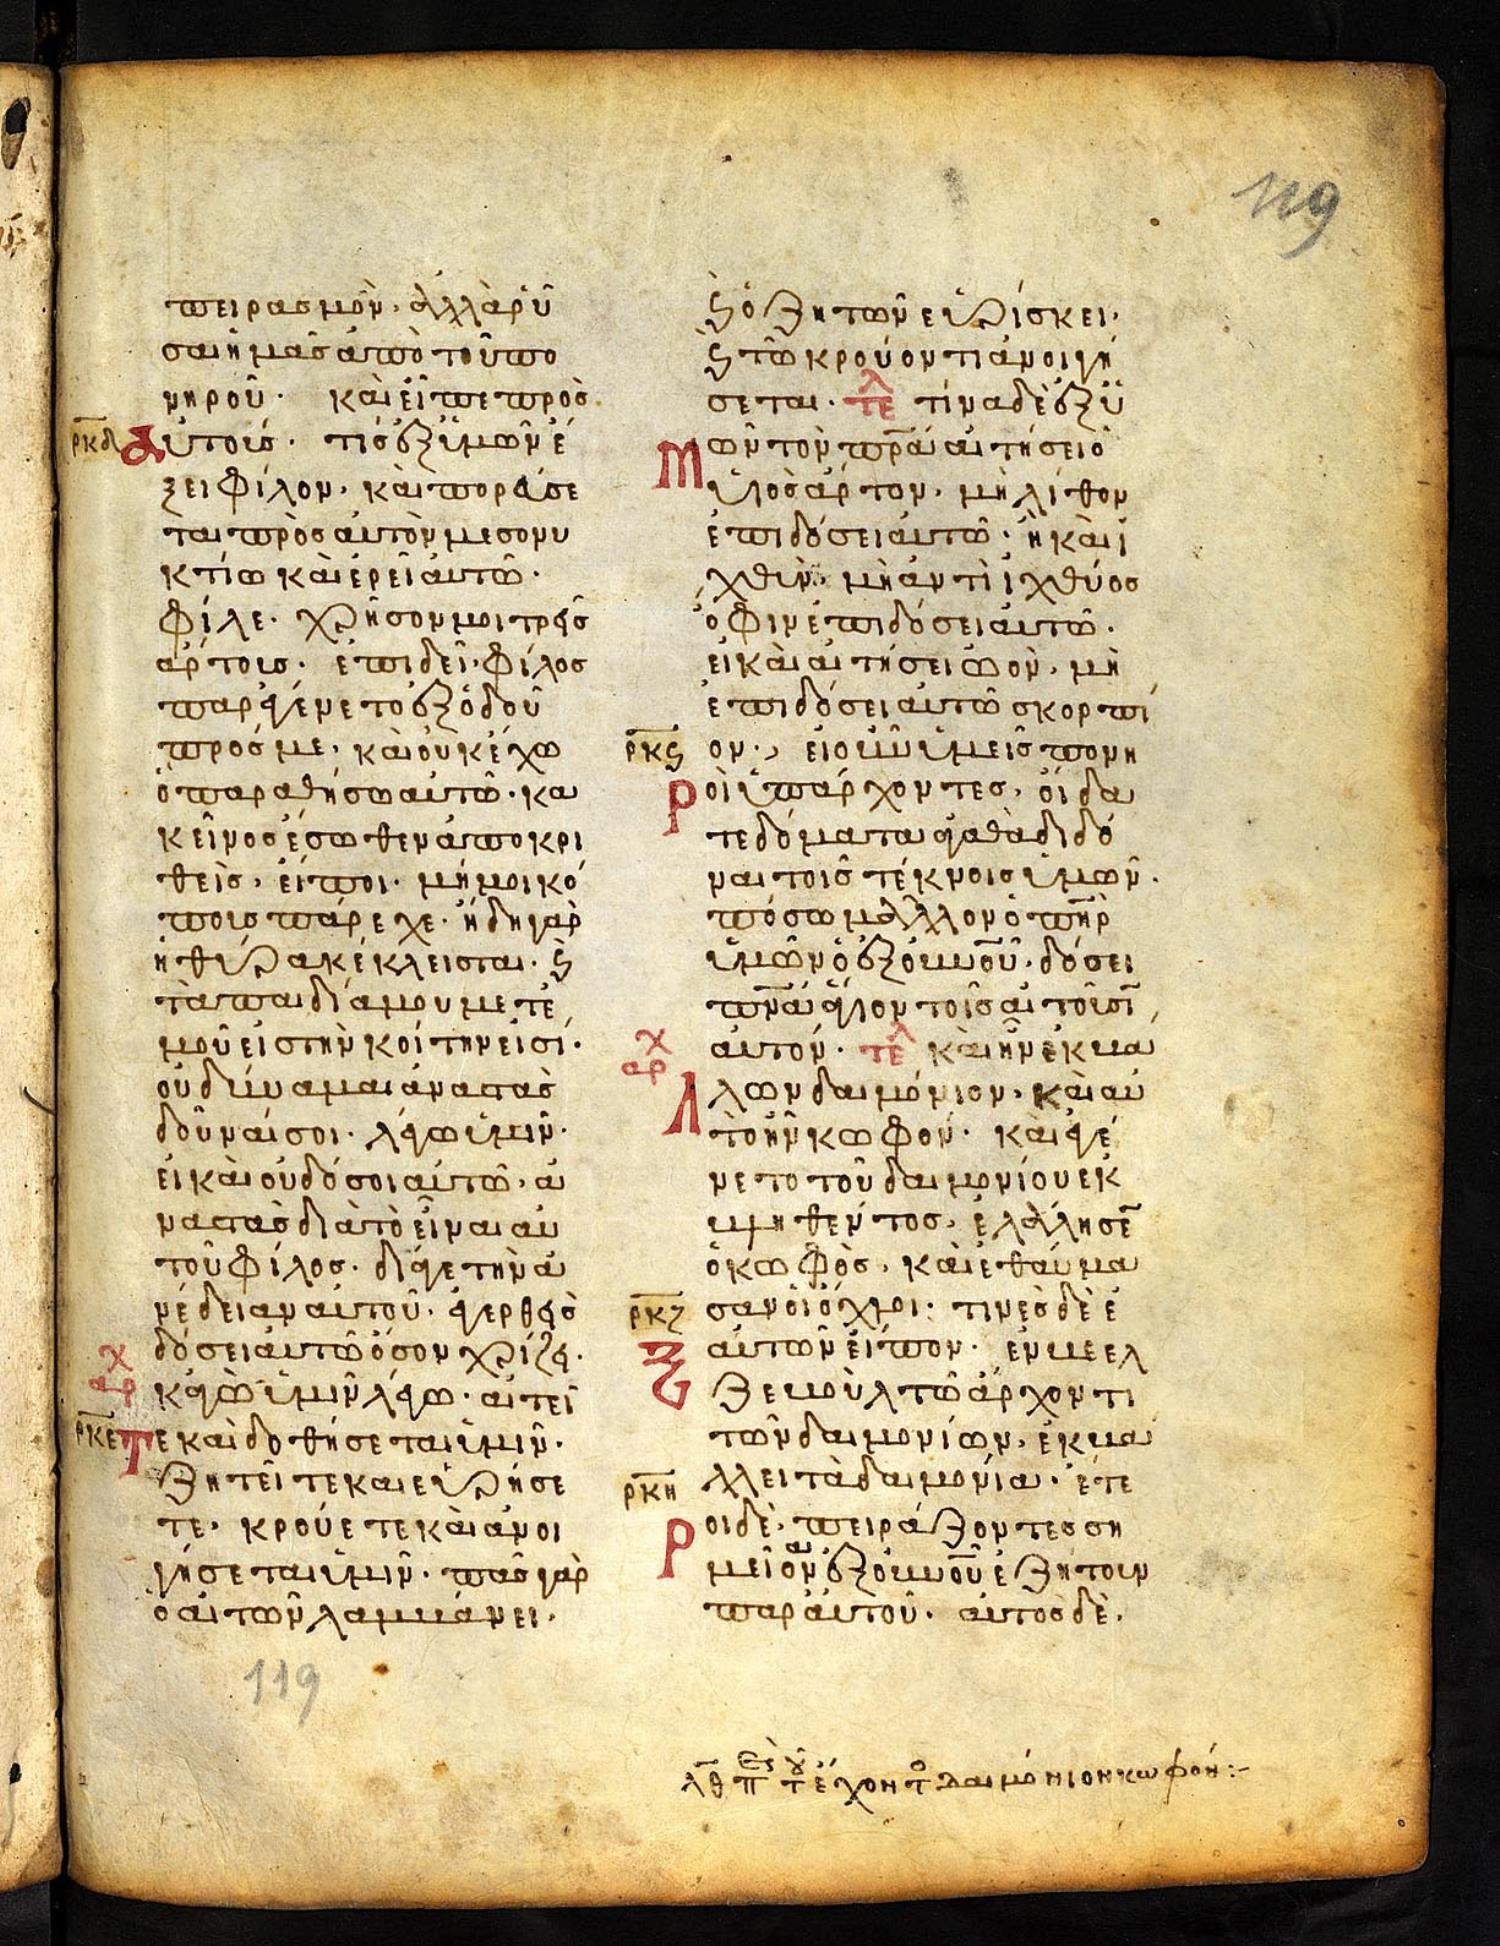 119
πειρασμὸν· ἀλλὰ ῥῦ
σαι ἡμᾶς ἀπὸ τοῦ πο
νηροῦ· καὶ εἶπε πρὸς
ρκδ αὐτούς· τίς ἐξ ὑμῶν ἕ
ξει φίλον· καὶ πορεύσε
ται πρὸς αὐτὸν μεσονυ
κτίω καὶ ἐρεῖ αὐτῶ·
φίλε· χρῆσόν μοι τρεῖς
ἄρτους· ἐπιδεῖ φίλος
παρεγένετο ἐξ ὁδοῦ
πρός με· καὶ οὐκ ἔχω
ὃ παραθήσω αὐτῶ· κα
κεῖνος ἔσωθεν ἀποκρι
θεὶς, εἴποι· μή μοι κό
πους πάρεχε· ἤδη γὰρ
ἡ θύρα κέκλεισται· ϗ
τὰ παιδία μου μετ ἐ
μοῦ εἰς τὴν κοίτην εἰσί·
οὐ δύναμαι ἀναστὰς
δοῦναί σοι· λέγω ὑμῖν·
εἰ καὶ οὐ δώσοι αὐτῶ· ἀ
ναστὰς διὰ τὸ εἶναι αὐ
τοῦ φίλος· διάγε τὴν ἀ
ναίδειαν αὐτοῦ· ἐγερθεὶς
δώσει αὐτῶ ὅσον χρήζει·
χ
αρ κἀγὼ ὑμῖν λέγω· αἰτεῖ
ρκε τε καὶ δοθήσεται ὑμῖν·
ζητεῖτε καὶ εὑρήσε
τε· κρούετε καὶ ἀνοι
γήσεται ὑμῖν· πᾶς γὰρ
ὁ αἰτῶν λαμβάνει·
119
ϗ ὁ ζητῶν εὑρίσκει·
ϗ τῶ κρούοντι ἀνοιγή
σεται· τελ τίνα δὲ ἐξ ὑ
μῶν τὸν πρα αἰτήσει ὁ
υἱὸς ἄρτον· μὴ λίθον
ἐπιδώσει αὐτῶ· ἢ καὶ ἰ
χθὺν· μὴ ἀντὶ ἰχθύος
ὄφιν ἐπιδώσει αὐτῶ·
εἰ καὶ αἰτήσει ὠὸν· μὴ
ἐπιδώσει αὐτῶ σκορπί
ρκϛ ον· εἰ οὖν ὑμεῖς πονη
ροὶ ὑπάρχοντες· οἴδα
τε δόματα ἀγαθὰ διδό
ναι τοῖς τέκνοις ὑμῶν·
πόσω μᾶλλον ὁ πηρ
ὑμῶν ὁ ἐξ οὐνοῦ· δώσει
πνα ἅγιον τοῖς αἰτοῦσῖ
χ
αρ αὐτόν· τελ καὶ ἦν ἐκβά
λλων δαιμόνιον· καὶ αὐ
τὸ ἦν κωφόν· καὶ ἐγέ
νετο τοῦ δαιμονίου ἐκ
βληθέντος· ἐλάλησε
ὁ κωφὸς· καὶ ἐθαύμα
ρκζ σαν οἱ ὄχλοι· τινὲς δὲ ἐ
ξ αὐτῶν εἶπον· ἐν βεελ
ζεβοὺλ τῶ ἄρχοντι
τῶν δαιμονίων· ἐκβά
ρκη λλει τὰ δαιμόνια· ἕτε
ροι δὲ· πειράζοντες ση
μεῖον ἐξ οὐνοῦ ἐζήτουν
παρ αὐτοῦ· αὐτὸς δὲ·
λθ π τ ἔχοντ δαιμόνιον κωφόν:-